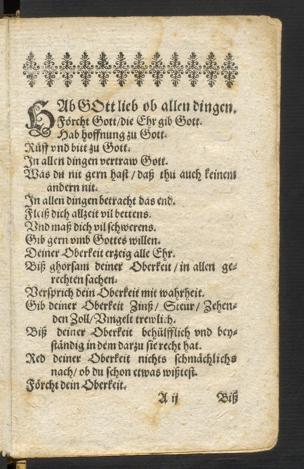 HAb GOtt lieb ob allen dingen.
Förcht Gott/die Ehr gib Gott.
Hab hoffnung zu Gott.
Rüff vnd bitt zu Gott.
In allen dingen vertraw Gott.
Was du nit gern hast / daß thu auch keinem
andern nit.
In allen dingen betracht das end.
Fleiß dich allzeit vil bettens.
Vnd maß dich vil schwerens.
Gib gern vmb Gottes willen.
Deiner Oberkeit erzeig alle Ehr.
Biß ghorsam deiner Oberkeit / in allen ge-
rechten sachen.
Versprich dein Oberkeit mit wahrheit.
Gib deiner Oberkeit Zinß / Steur / Zehen-
den Zoll / Vmgelt trewlich.
Biß deiner Oberkeit behülfflich vnd bey-
ständig in dem darzu sie recht hat.
Red deiner Oberkeit nichts schmächlichs
nach / ob du schon etwas wißtest.
Förcht dein Oberkeit.
A ij Biß